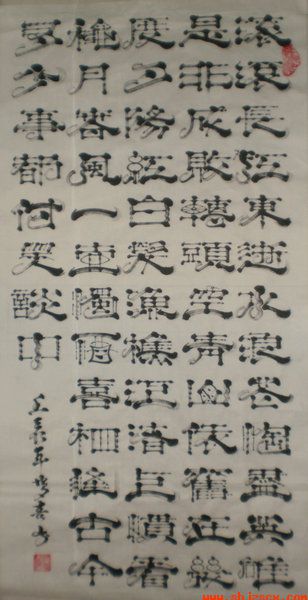 滾滾長江東逝水浪花淘盡英雄
是非成敗轉頭空青山依舊在幾
度夕陽紅白髮漁樵江渚上慣看
秋月春風一壺濁酒喜相逢古今
多少事都付笑談中
壬辰年